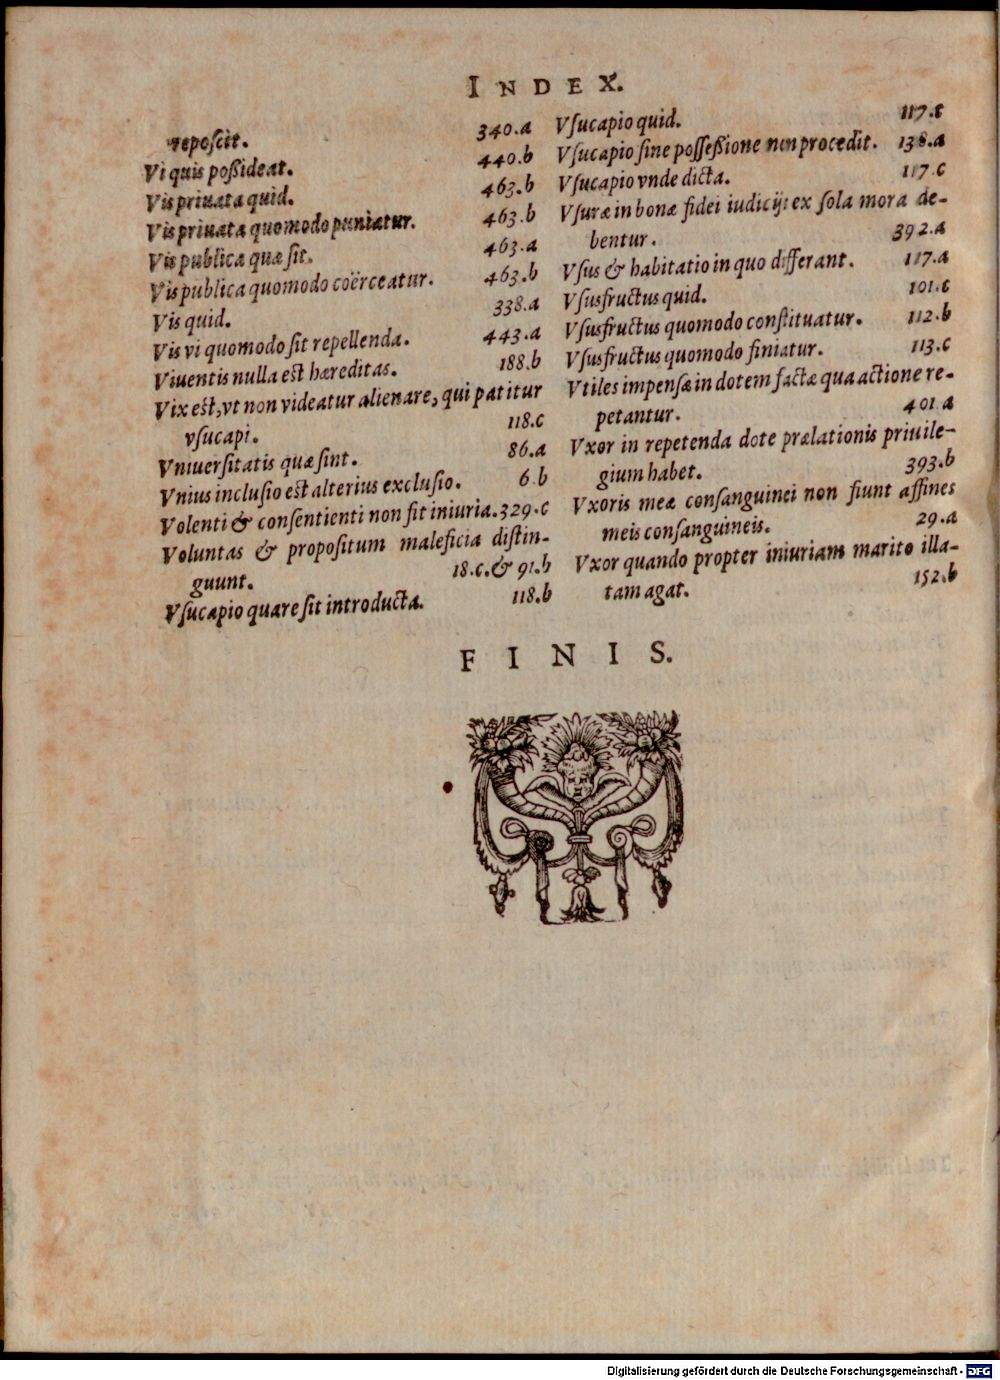 INDEX.
repoſcit. 340.a
Vi quis poßideat. 440.b
Vis priuata quid. 463.b
Vis priuata quomodo puniatur. 463.b
Vis publica quæ ſit. 463.a
Vis publica quomodo coërceatur. 463.b
Vis quid. 338.a
Vis vi quomodo ſit repellenda. 443.a
Viuentis nulla eſt hæreditas. 188.b
Vix eſt, vt non videatur alienare, qui patitur
vſucapi. 118.c
Vniuerſitatis quæ ſint. 86.a
Vnius incluſio eſt alterius excluſio. 6.b
Volenti & conſentienti non fit iniuria. 329.c
Voluntas & propoſitum maleficia diſtin-
guunt. 18.c. & 91.b
Vſucapio quare ſit introducta. 118.b
Vſucapio quid. 117.c
Vſucapio ſine poſſeßione non procedit. 138.a
Vſucapio vnde dicta. 117.c
Vſuræ in bonæ fidei iudicijs ex ſola mora de-
bentur. 392.a
Vſus & habitatio in quo differant. 117.a
Vſusfructus quid. 101.c
Vſusfructus quomodo conſtituatur. 112.b
Vſusfructus quomodo finiatur. 113.c
Vtiles impenſæ in dotem factæ qua actione re-
petantur. 401.a
Vxor in repetenda dote prælationis priuile-
gium habet. 393.b
Vxoris meæ conſanguinei non fiunt affines
meis conſanguineis. 29.a
Vxor quando propter iniuriam marito illa-
tam agat. 152.b
FINIS.
Digitalisierung gefördert durch die Deutsche Forschungsgemeinschaft - DFG